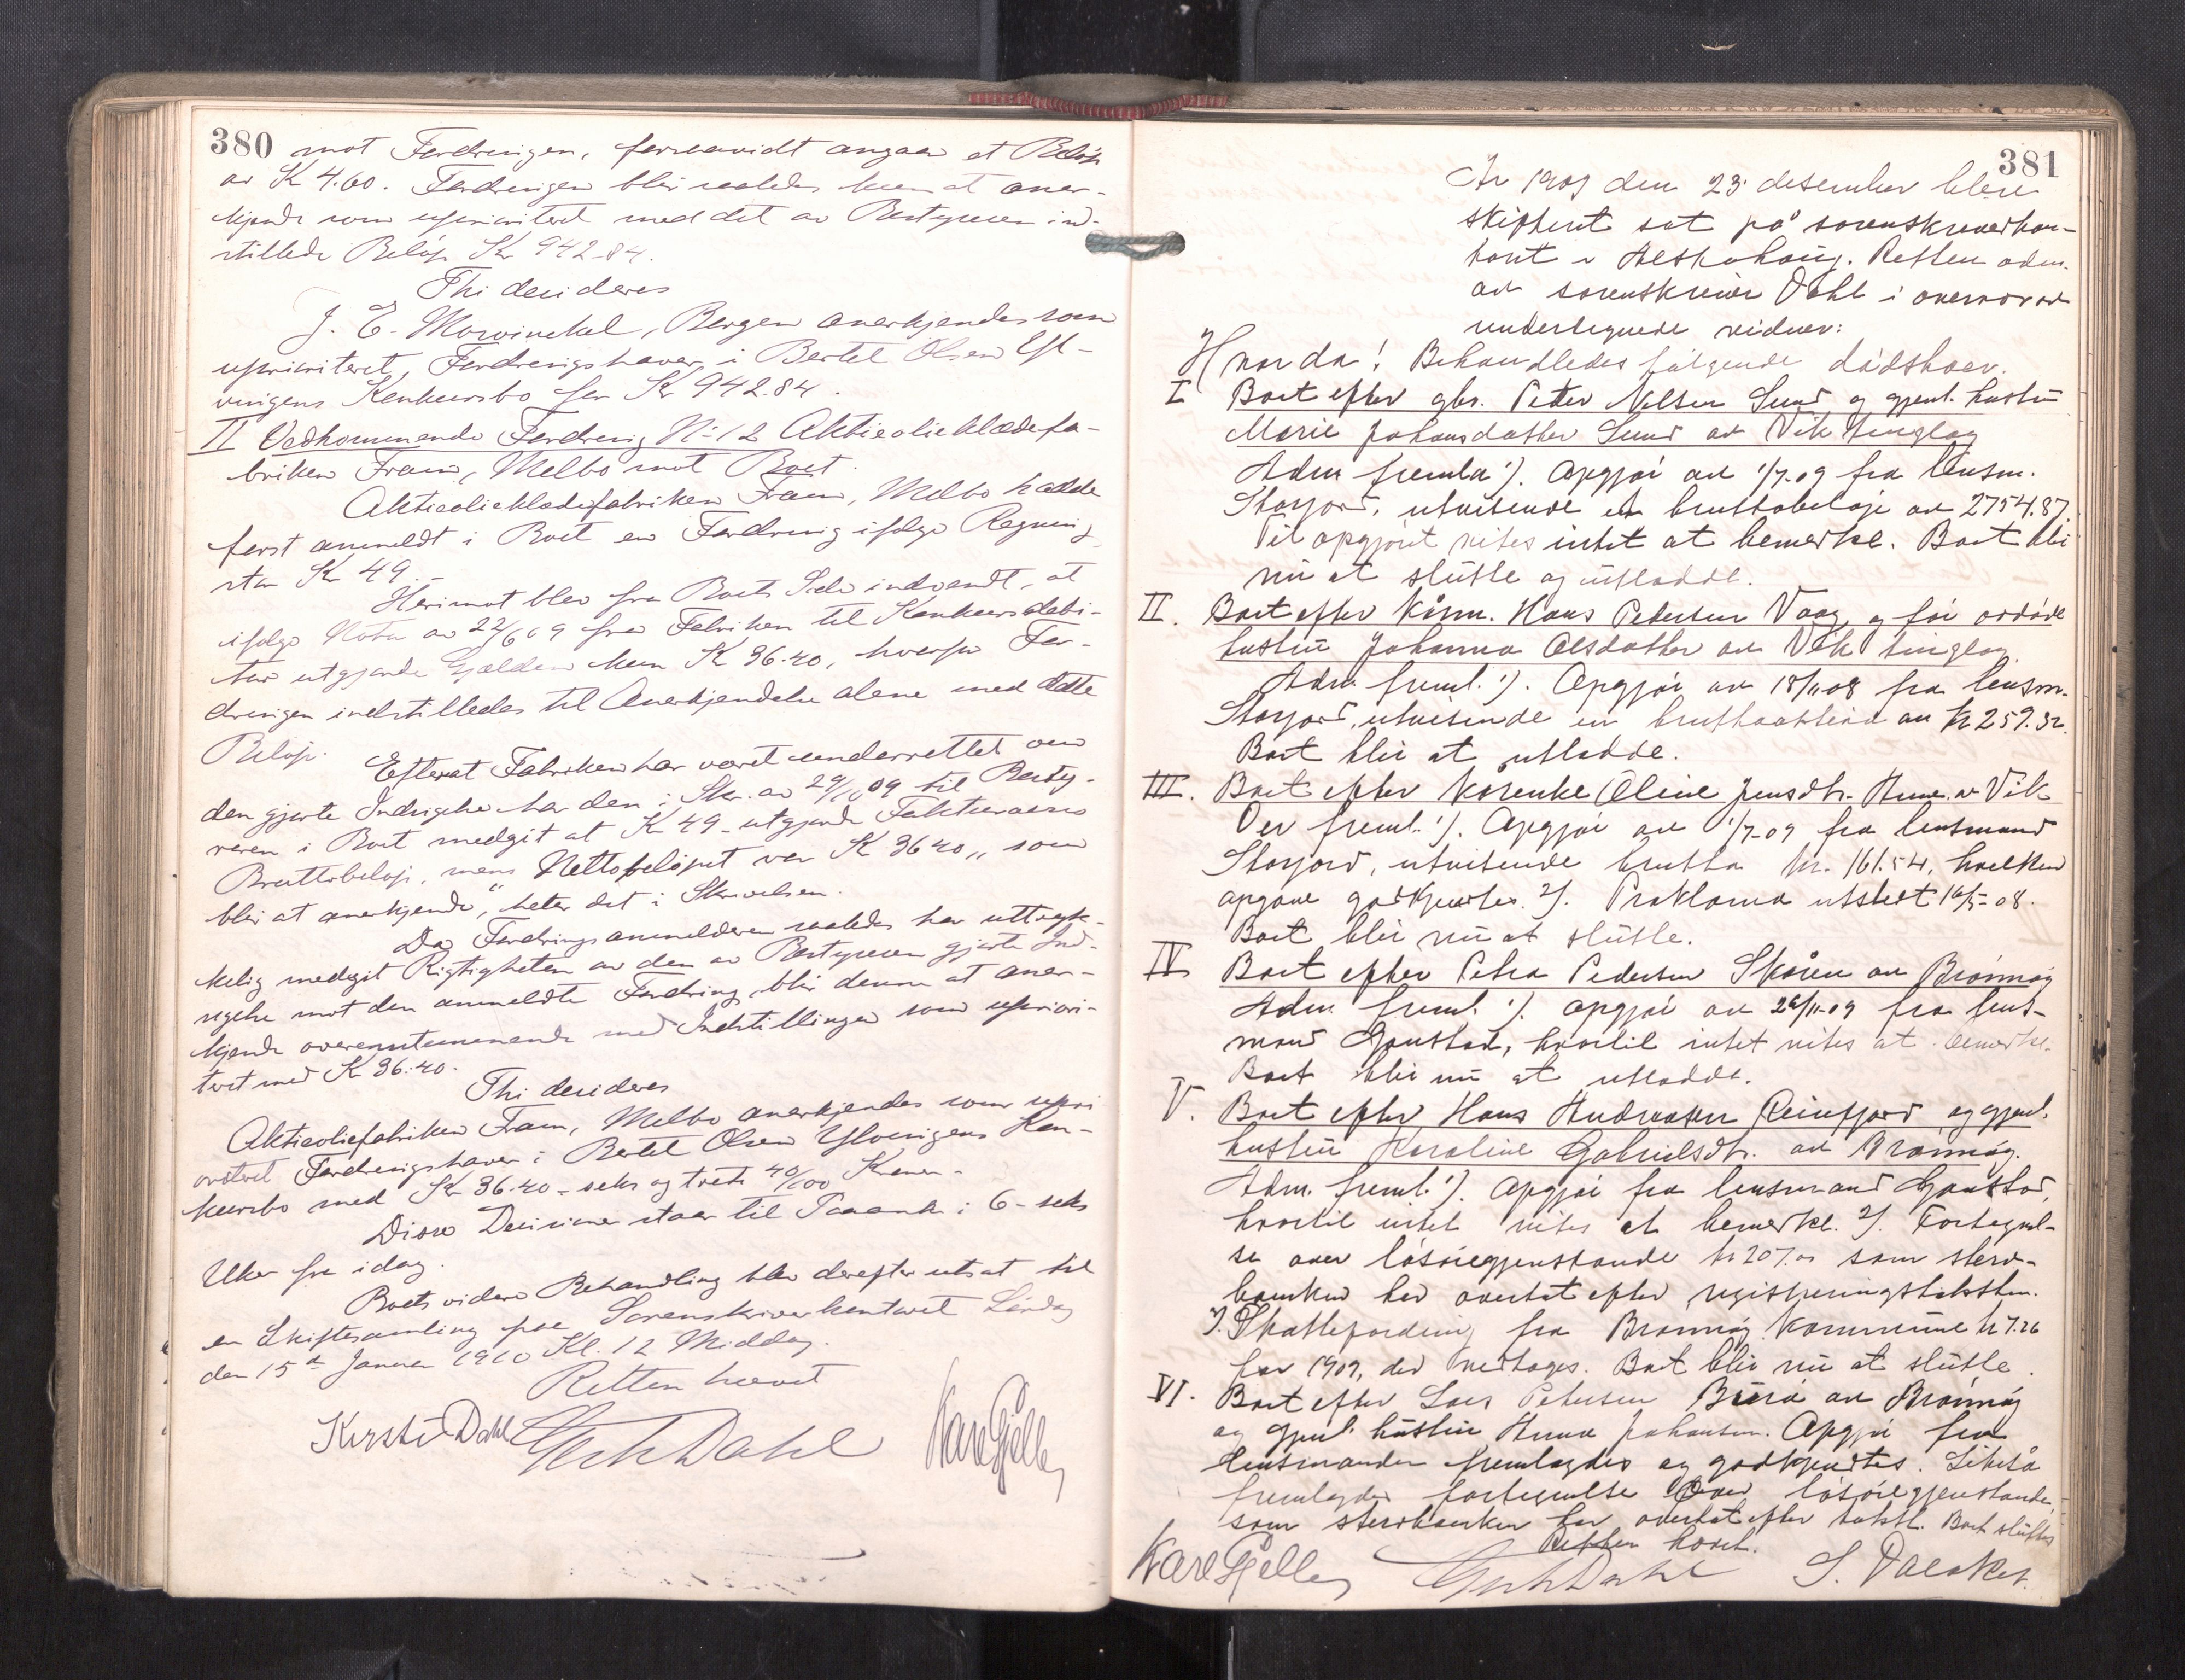 380
mot Fordringen, forsaavidt angaar et Beløp
av Kr 4.60. Fordringen blir saaledes kun at aner-
kjende som uprioritert med det av Bestyreren ind-
stillede Beløp Kr 942.84.
Thi decideres
J. E. Mowinckel, Bergen anerkjendes som
uprioriteret Fordringshaver i Bertel Olsen Yl-
vingens Konkursbo for Kr 942.84.
II Vedkommende Fordring No 12 Aktieolieklædefa-
briken Fram, Melbo mot Boet.
Aktieolieklædefabriken Fram, Melbo hadde
først anmeldt i Boet en Fordring ifølge Regning
stor Kr 49.-
Herimot blev fra Boets Side indvendt, at
ifølge Nota av 22/6 09 fra Fabriken til Konkursdebi-
tor utgjorde Gjælden kun Kr 36.40, hvorfor For-
dringen indstilledes til Anerkjendelse alene med dette
Beløp.
Efterat Fabriken har været underrettet om
den gjorte Indsigelse har den i Skr. av 29/10 09 til Besty-
reren i Boet medgit at Kr 49.- utgjorde Fakturaens
Bruttobeløp, mens Nettobeløpet var Kr 36.40 „som
blir at anerkjende", heter det i Skrivelsen.
Da Fordringsanmelderen saaledes har uttryk-
kelig medgit Rigtigheten av den av Bestyreren gjorte Ind-
sigelse mot den anmeldte Fordring, blir denne at aner-
kjende overensstemmende med Indstillingen som upriori-
tert med Kr 36.40.
Thi decideres
Aktieoliefabriken Fram, Melbo anerkjendes som upri
oriteret Fordringshaver i Bertel Olsen Ylvingens Kon-
kursbo med Kr 36.40 - seks og treti 40/100 Kroner -
Disse Decisioner staar til Paaanke i 6 - seks
Uker fra idag.
Boets videre Behandling blev derefter utsat til
en Skiftesamling paa Sorenskriverkontoret Lørdag
den 15de Januar 1910 Kl. 12 Middag.
Retten hævet
Kirsti Dahl Dahl Karl Gjelle
381
År 1909 den 23 desember blev
skifteret sat på sorenskriverkon-
toret i Alstahoug. Retten adm.
av sorenskriver Dahl i overvær av
undertegnede vidner:
Hvorda! Behandledes følgende dødsboer.
I Boet efter gbr. Peter Nilsen Sund og gjenl. hustru
Marie Johansdatter Sund av Vik tinglag
Adm fremla 1). Opgjør av 1/7-09 fra lensm.
Storjord, utvisende et bruttobeløp av 2754.87.
Til opgjøret vites intet at bemerke. Boet blir
nu at slutte og utlodde.
II. Boet efter kårm. Hans Pedersen Vaag og før avdøde
hustru Johanna Olsdatter av Vik tinglag.
Adm. freml. 1). Opgjør av 18/11-08 fra lensm.
Storjord, utvisende en bruttoaktiva av kr 259.32.
Boet blir at utlodde.
III. Boet efter kårenke Oline Jensdtr. Hune av Vik
Der freml. 1). Opgjør av 1/7-09 fra lensmand
Storjord, utvisende brutto kr. 161.54, hvilken
opgave godkjendtes. 2). Proklama utstedt 16/5-08.
Boet blir nu at slutte.
IV Boet efter Petra Pedersen Skåren av Brønnøy
Adm. freml. 1). opgjør av 26/11-09 fra lens-
mand Gaustad, hvortil intet vites at bemerke.
Boet blir nu at utlodde.
V. Boet efter Hans Andreasen Reinfjord og gjenl.
hustru Karoline Gabrielsdtr. av Brønnøy.
Adm. freml. 1). Opgjør fra lensmand Gaustad,
hvortil intet vites at bemerke. 2). Fortegnel-
se over løsøregjenstande kr 207.00 som sterv-
boenken har overtat efter registreringstaksten.
3. Skattefordring fra Brønnøy kommune kr 7.26
for 1909, der vedtages. Boet blir nu at slutte.
VI. Boet efter Lars Petersen av Brønnøy
og gjenl. hustru Anna Johansen. Opgjør fra
lensmanden fremlagdes og godkjendtes. Likeså
fremlagdes fortegnelse over løsøregjenstande,
som stervboenken har overtat efter takst. Boet sluttes
Retten hævet.
Karl Gjelle Dahl S.